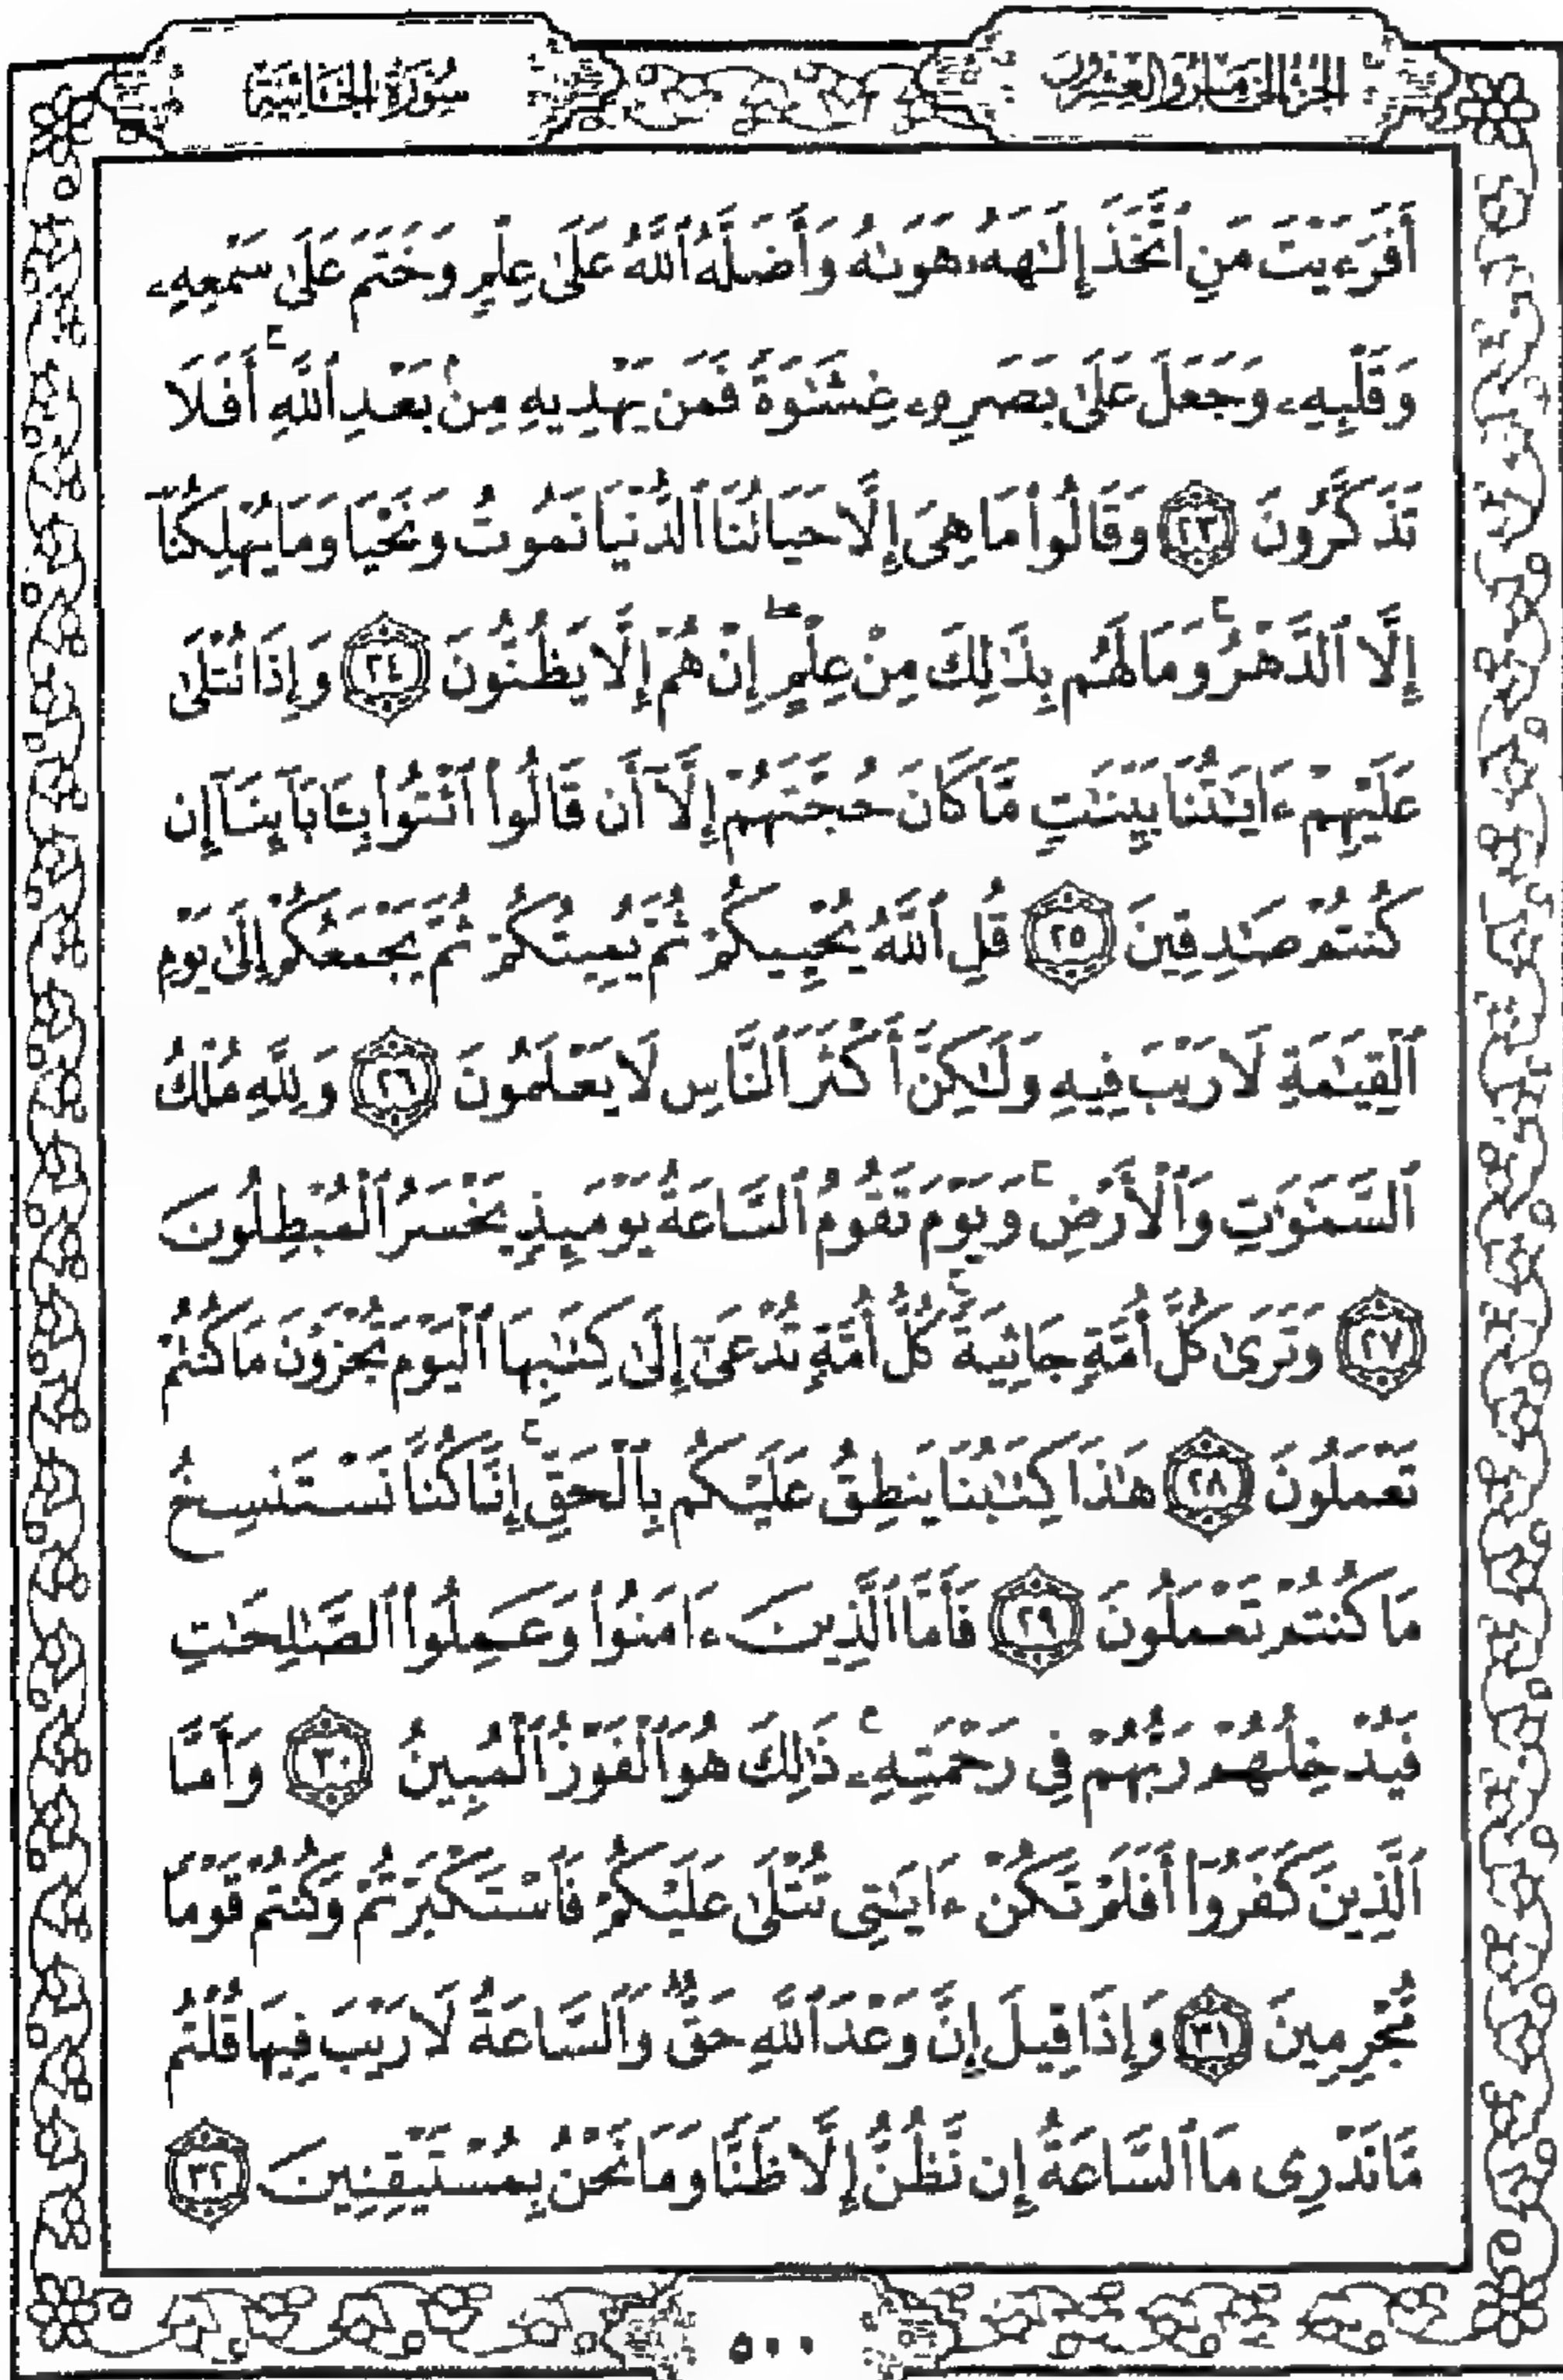 الجزء الخامس والعشرون
سورة الجاثية
أَفَرَءَيْتَ مَنِ ٱتَّخَذَ إِلَٰهَهُۥ هَوَىٰهُ وَأَضَلَّهُ ٱللَّهُ عَلَىٰ عِلْمٍ وَخَتَمَ عَلَىٰ سَمْعِهِۦ
وَقَلْبِهِۦ وَجَعَلَ عَلَىٰ بَصَرِهِۦ غِشَٰوَةً فَمَن يَهْدِيهِ مِنۢ بَعْدِ ٱللَّهِ ۚ أَفَلَا
تَذَكَّرُونَ ٢٣ وَقَالُوا۟ مَا هِىَ إِلَّا حَيَاتُنَا ٱلدُّنْيَا نَمُوتُ وَنَحْيَا وَمَا يُهْلِكُنَآ
إِلَّا ٱلدَّهْرُ ۚ وَمَا لَهُم بِذَٰلِكَ مِنْ عِلْمٍ ۖ إِنْ هُمْ إِلَّا يَظُنُّونَ ٢٤ وَإِذَا تُتْلَىٰ
عَلَيْهِمْ ءَايَٰتُنَا بَيِّنَٰتٍ مَّا كَانَ حُجَّتَهُمْ إِلَّآ أَن قَالُوا۟ ٱئْتُوا۟ بِـَٔابَآئِنَآ إِن
كُنتُمْ صَٰدِقِينَ ٢٥ قُلِ ٱللَّهُ يُحْيِيكُمْ ثُمَّ يُمِيتُكُمْ ثُمَّ يَجْمَعُكُمْ إِلَىٰ يَوْمِ
ٱلْقِيَٰمَةِ لَا رَيْبَ فِيهِ وَلَٰكِنَّ أَكْثَرَ ٱلنَّاسِ لَا يَعْلَمُونَ ٢٦ وَلِلَّهِ مُلْكُ
ٱلسَّمَٰوَٰتِ وَٱلْأَرْضِ ۚ وَيَوْمَ تَقُومُ ٱلسَّاعَةُ يَوْمَئِذٍ يَخْسَرُ ٱلْمُبْطِلُونَ
٢٧ وَتَرَىٰ كُلَّ أُمَّةٍ جَاثِيَةً ۚ كُلُّ أُمَّةٍ تُدْعَىٰٓ إِلَىٰ كِتَٰبِهَا ٱلْيَوْمَ تُجْزَوْنَ مَا كُنتُمْ
تَعْمَلُونَ ٢٨ هَٰذَا كِتَٰبُنَا يَنطِقُ عَلَيْكُم بِٱلْحَقِّ ۚ إِنَّا كُنَّا نَسْتَنسِخُ
مَا كُنتُمْ تَعْمَلُونَ ٢٩ فَأَمَّا ٱلَّذِينَ ءَامَنُوا۟ وَعَمِلُوا۟ ٱلصَّٰلِحَٰتِ
فَيُدْخِلُهُمْ رَبُّهُمْ فِى رَحْمَتِهِۦ ۚ ذَٰلِكَ هُوَ ٱلْفَوْزُ ٱلْمُبِينُ ٣٠ وَأَمَّا
ٱلَّذِينَ كَفَرُوٓا۟ أَفَلَمْ تَكُنْ ءَايَٰتِى تُتْلَىٰ عَلَيْكُمْ فَٱسْتَكْبَرْتُمْ وَكُنتُمْ قَوْمًا
مُّجْرِمِينَ ٣١ وَإِذَا قِيلَ إِنَّ وَعْدَ ٱللَّهِ حَقٌّ وَٱلسَّاعَةُ لَا رَيْبَ فِيهَا قُلْتُم
مَّا نَدْرِى مَا ٱلسَّاعَةُ إِن نَّظُنُّ إِلَّا ظَنًّا وَمَا نَحْنُ بِمُسْتَيْقِنِينَ ٣٢
٥٠٠